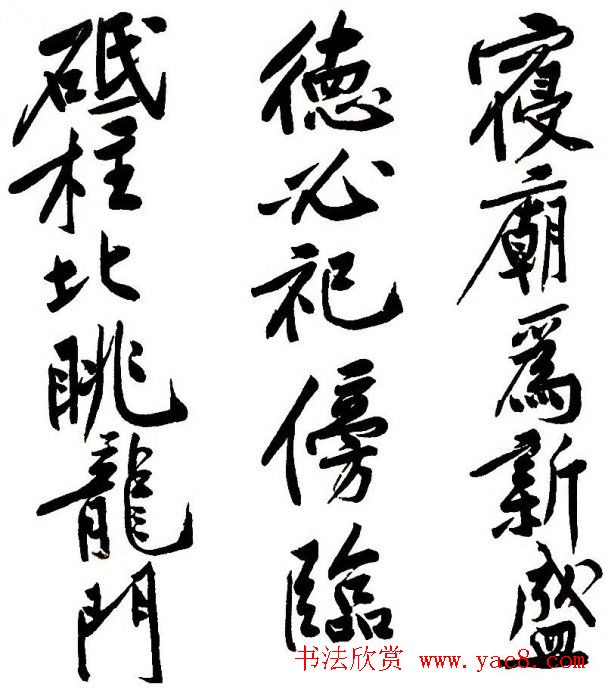 寝廟爲新盛
德必祀傍臨
砥柱北眺龍門
书法欣赏 www.yac8.com